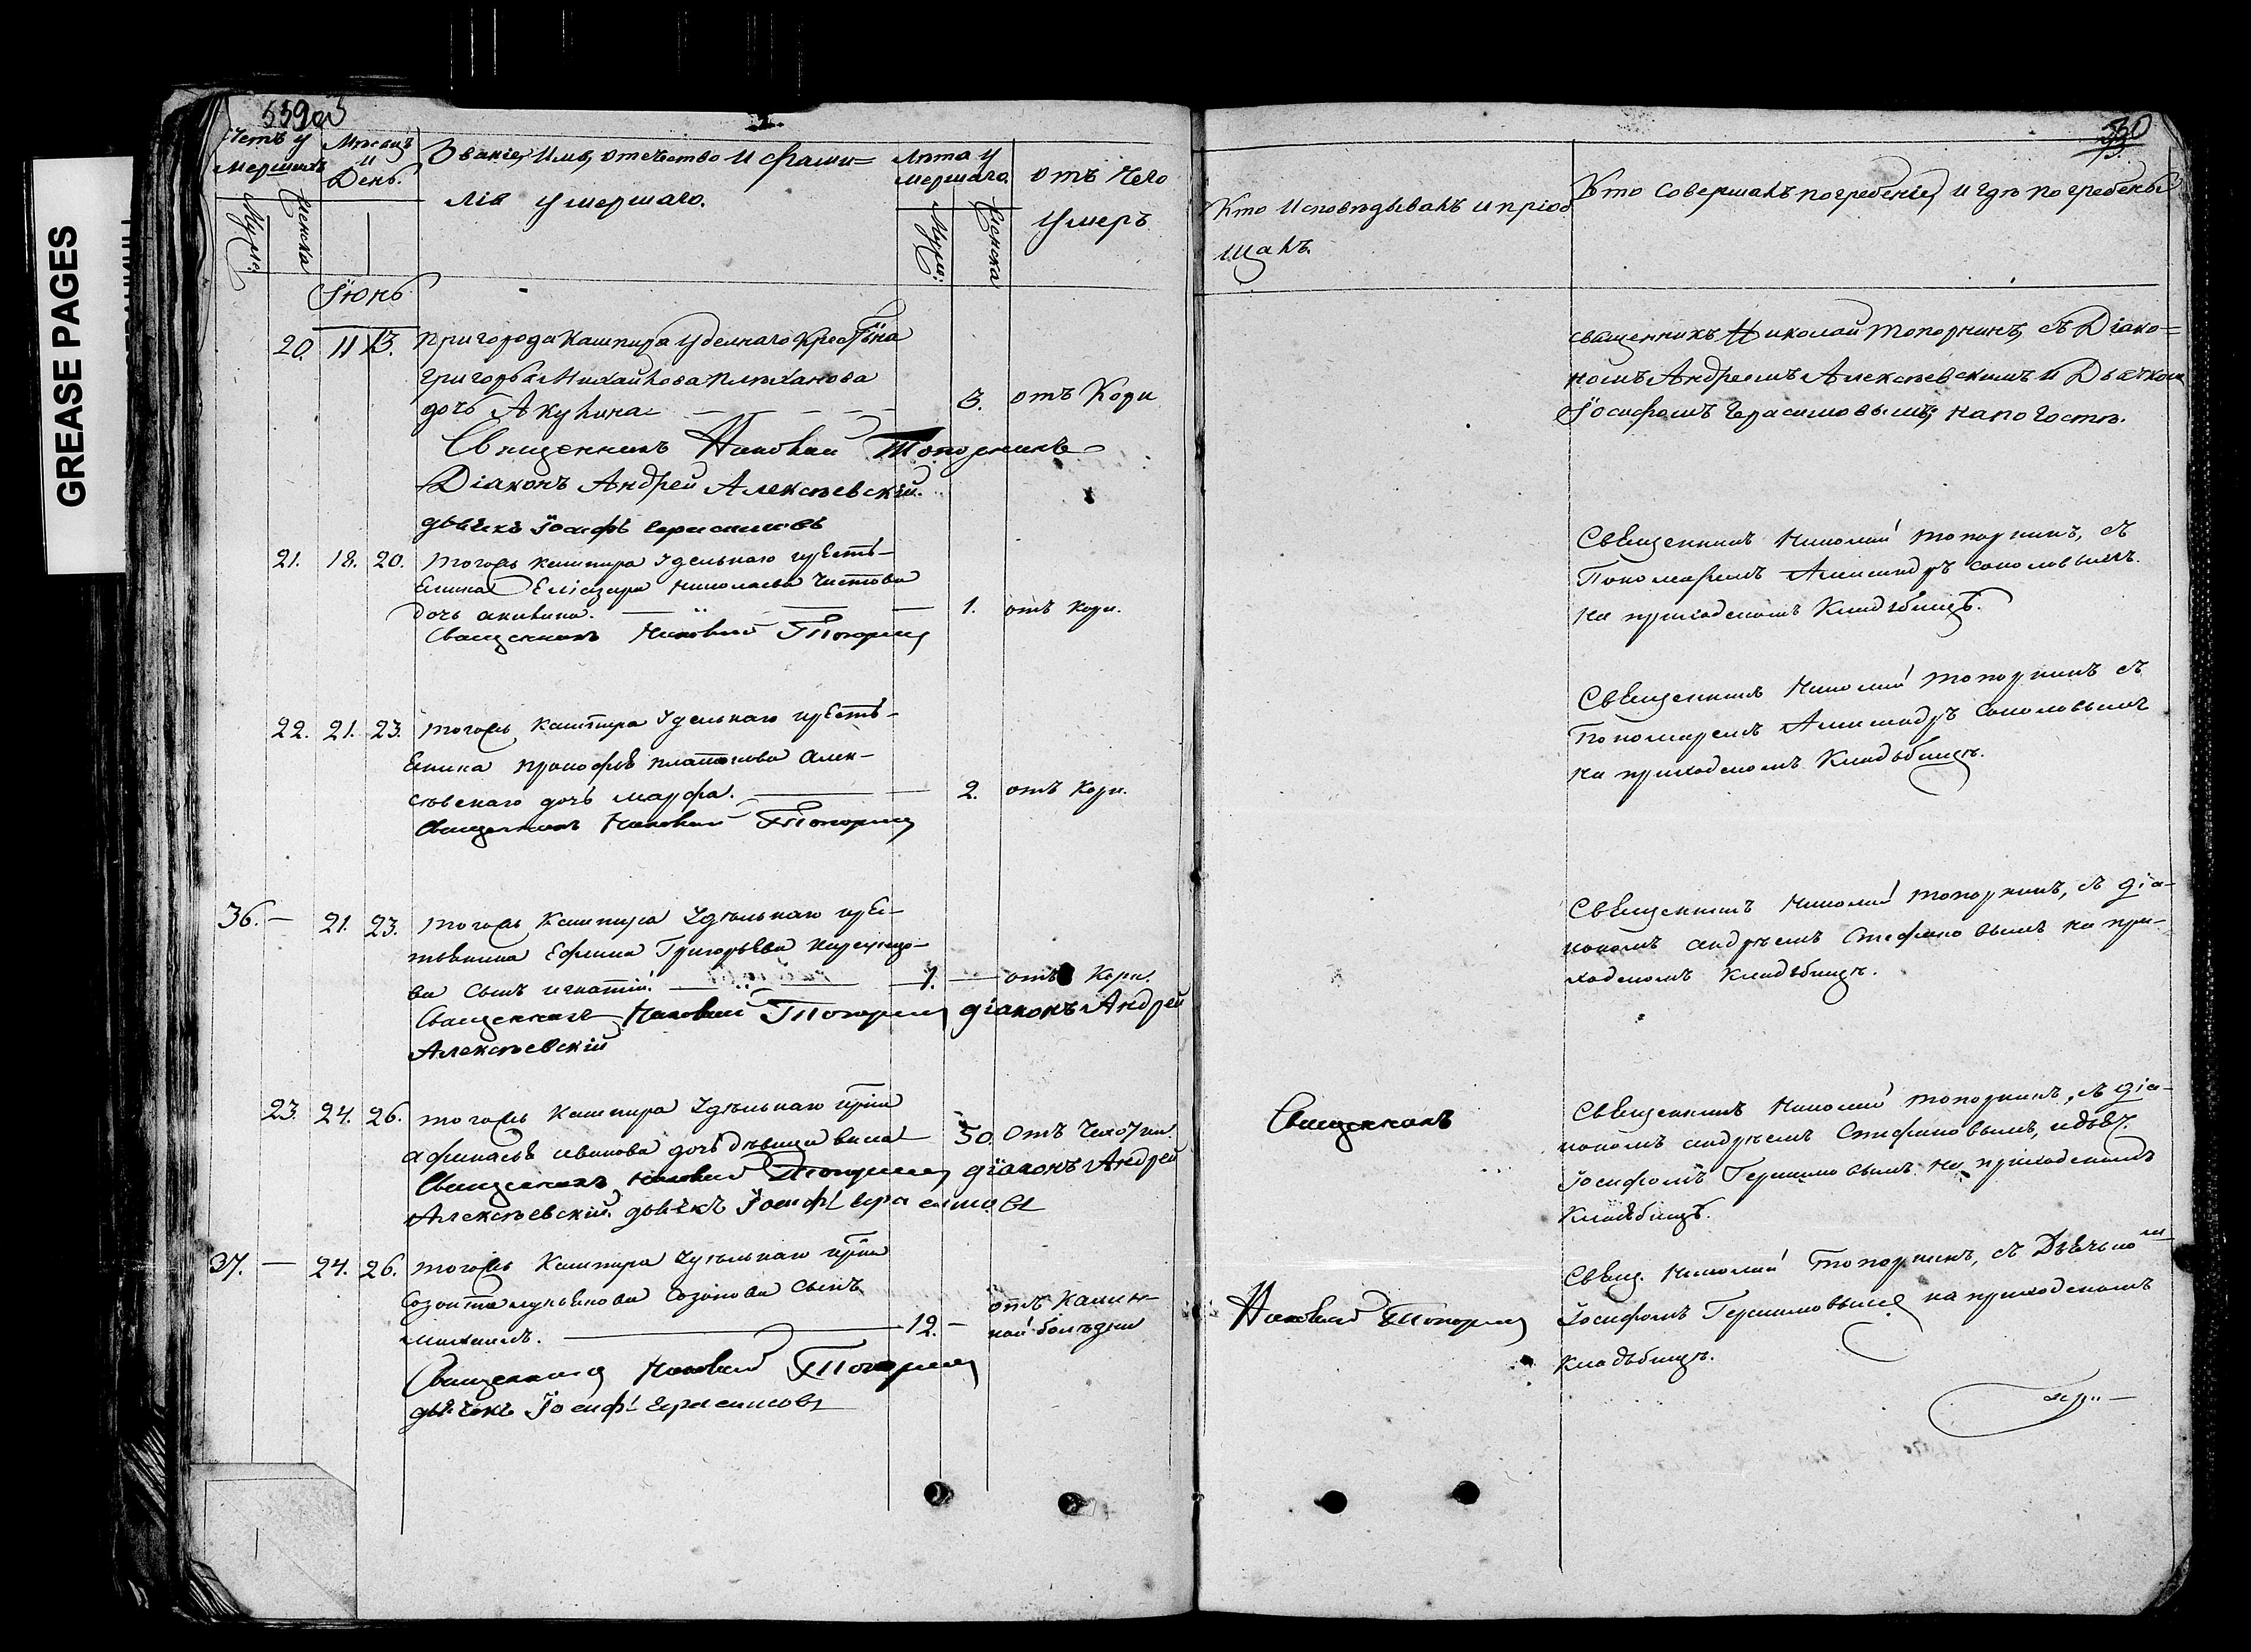 GREASE PAGES
559 об
530
Счетъ у
мершихъ
Муж:
Женска
Мѣсяцъ
и
День.
Званіе, Имя, отечество и фами=
лія умершаго.
Лѣта у
мершаго.
Муж:
Женска
отъ чего
умеръ.
Кто исповѣдывалъ и пріоб
щалъ.
Кто совершалъ погребеніе, и гдѣ погребены
Іюнь
20. 11 13. Пригорода Кашпира удѣлнаго крестьяна
Григорья Михайлова Плѣханова
дочь Акулина 3. отъ Кори
Священникъ Николай Топорнинъ
Діаконъ Андрей Алексѣевскій.
дьячекъ Іосифъ Герасимовъ
священникъ Николай Топорнинъ, съ Діако=
номъ Андреемъ Алексѣевскимъ и Дьячкомъ
Іосифомъ Герасимовымъ; на погостѣ.
21. 18. 20. Тогожъ Кашпира Удельнаго крестья-
нина Еліазара Николаева Чистова
дочь акилина. 1. отъ кори.
Священникъ Николай Топорнин
Священникъ Николай Топорнинъ, съ
Пономаремъ Александръ Соколовымъ.
на приходскомъ Кладбищѣ.
22. 21. 23. Тогожъ Кашпира Удельнаго кресть-
янина Прокофья Платонова Алек-
сѣевскаго дочь марфа. 2. отъ кори.
Священникъ Николай Топорнин
Священникъ Николай Топорнинъ съ
Пономаремъ Александръ Соколовымъ
на приходскомъ Кладбищѣ.
36. — 21. 23. Тогожъ Кашпира Удѣльнаго крес-
тьянина Ефима Григорьева
ва сынъ игнатій. 1. — отъ Кори.
Священникъ Николай Топорнин діаконъ Андрей
Алексѣевскій
Священникъ Николай Топорнинъ, съ діа-
кономъ андреемъ Стефановымъ на при-
ходскомъ кладбищѣ.
23 24. 26. Тогожъ Кашпира Удѣльнаго
афанасья иванова дочь дѣвица 50. Отъ Чахотки.
Священникъ Николай Топорнин діаконъ Андрей
Алексѣевскій. дьячекъ Іосифъ Герасимовъ
Священникъ
Священникъ Николай Топорнинъ, съ діа-
кономъ андреемъ Стефановымъ, и дьяч.
Іосифомъ Герасимовымъ. на приходскомъ
Кладбищѣ.
37. — 24. 26. Тогожъ Кашпира Удѣльнаго
Созонта Лукьянова Созонова сынъ
михаилъ. 12. — отъ Камен-
ной болѣзни
Священник Николай Топорнин
дьячекъ Іосифъ Герасимовъ
Николай Топорнин
Свящ. Николай Топорнинъ, съ Дьячкомъ
Іосифомъ Герасимовымъ на приходскомъ
кладбищѣ.